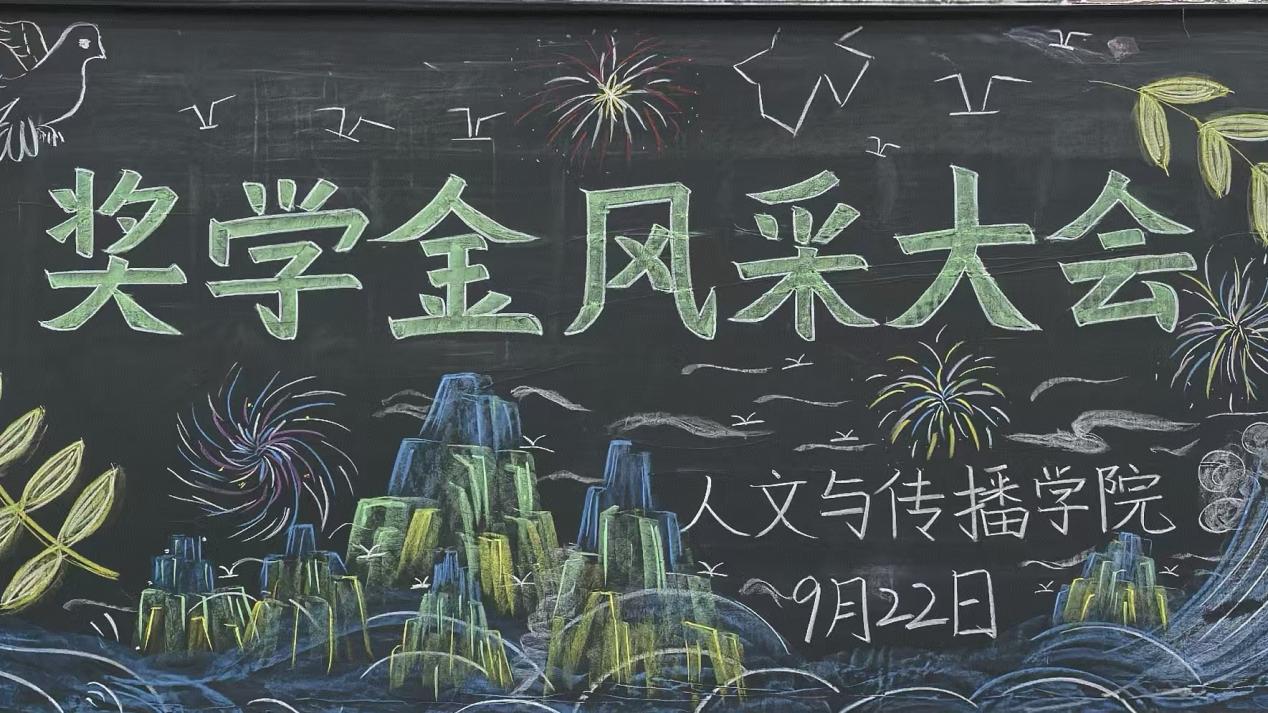 奖学金风采大会
人文与传播学院
9月22日